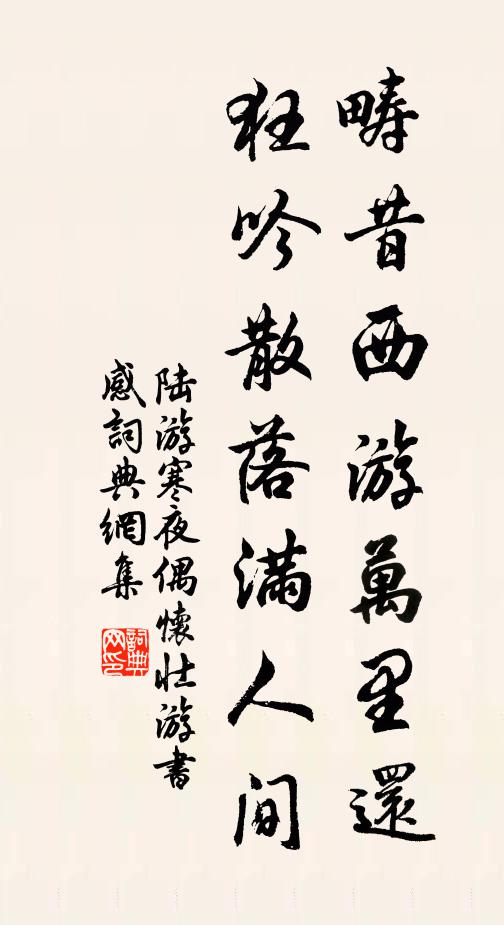 疇昔西游萬里還
狂吟散落滿人間
陸游寒夜偶懷壯游書
感詞典網集
詞典网印